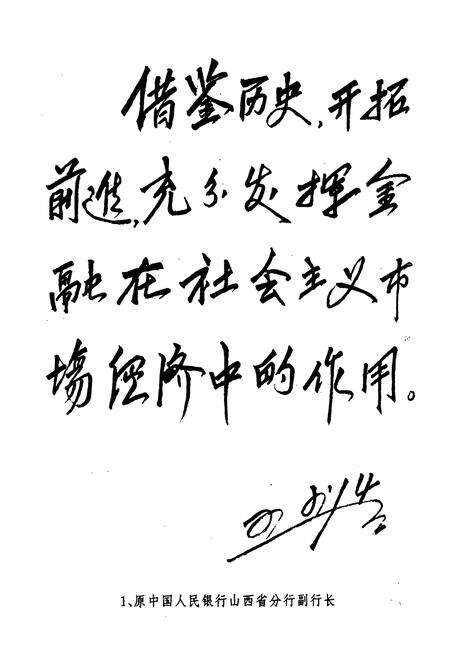 借鉴历史,开拓
前進,充分发挥金
融在社会主义市
場经济中的作用。
1、原中国人民银行山西省分行副行长